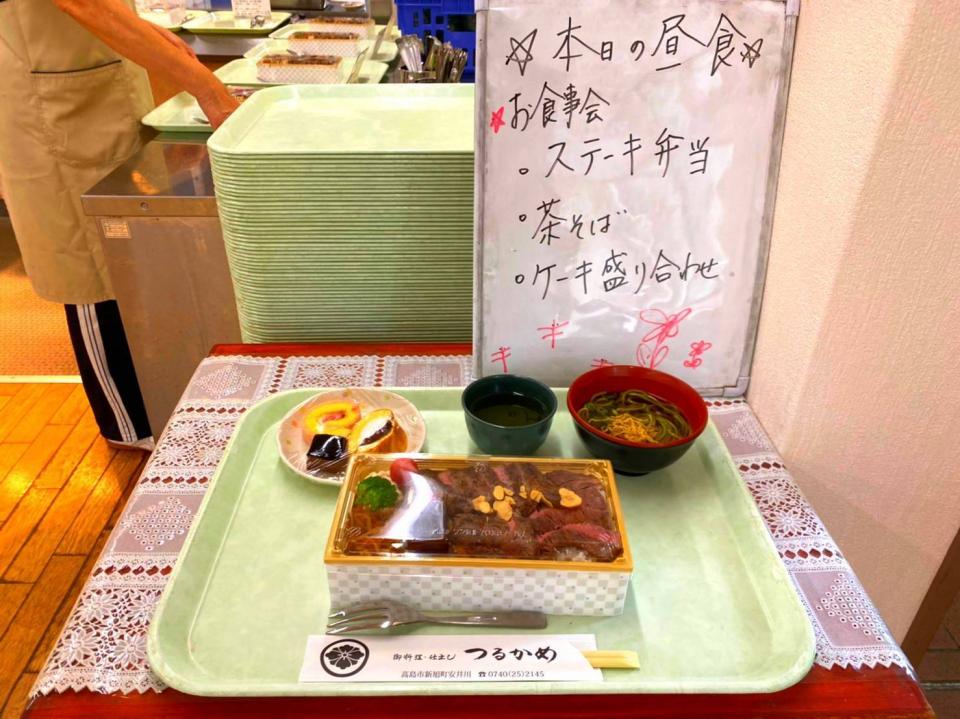 ☆本日の昼食☆
★お食事会
○ステーキ弁当
○茶そば
○ケーキ盛り合わせ
御料理・仕出し つるかめ
高島市新旭町安井川 ☎0740(25)2145